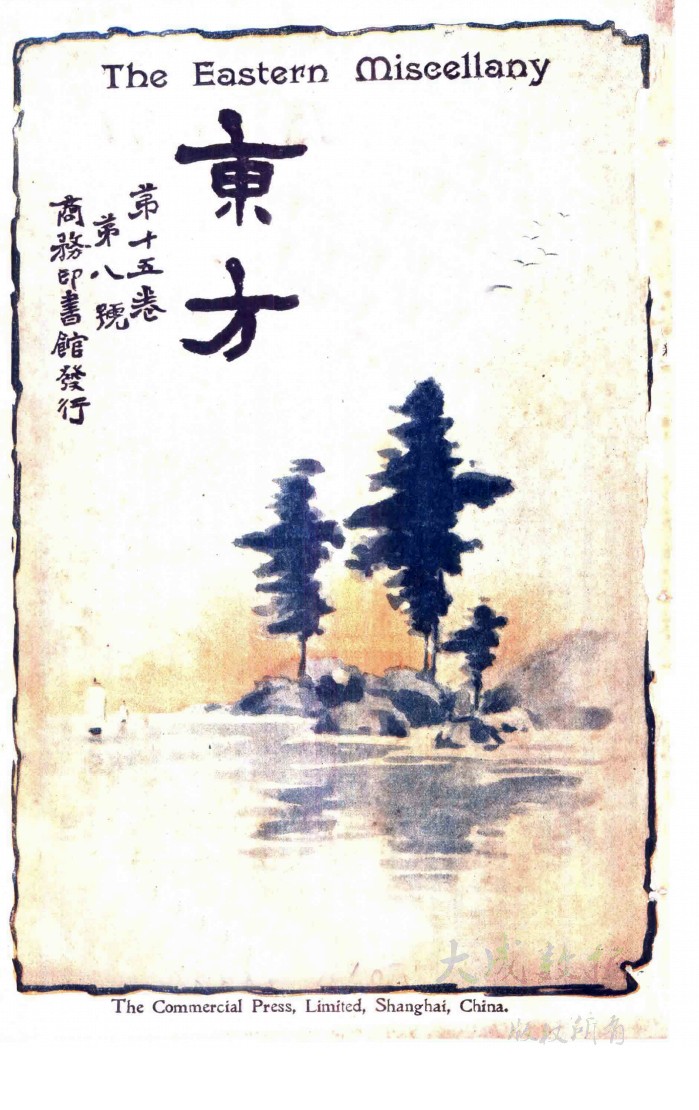 The Eastern Miscellany
東方
第十五卷
第八號
商務印書館發行
The Commercial Press, Limited, Shanghai, China.
大成数据
版权所有